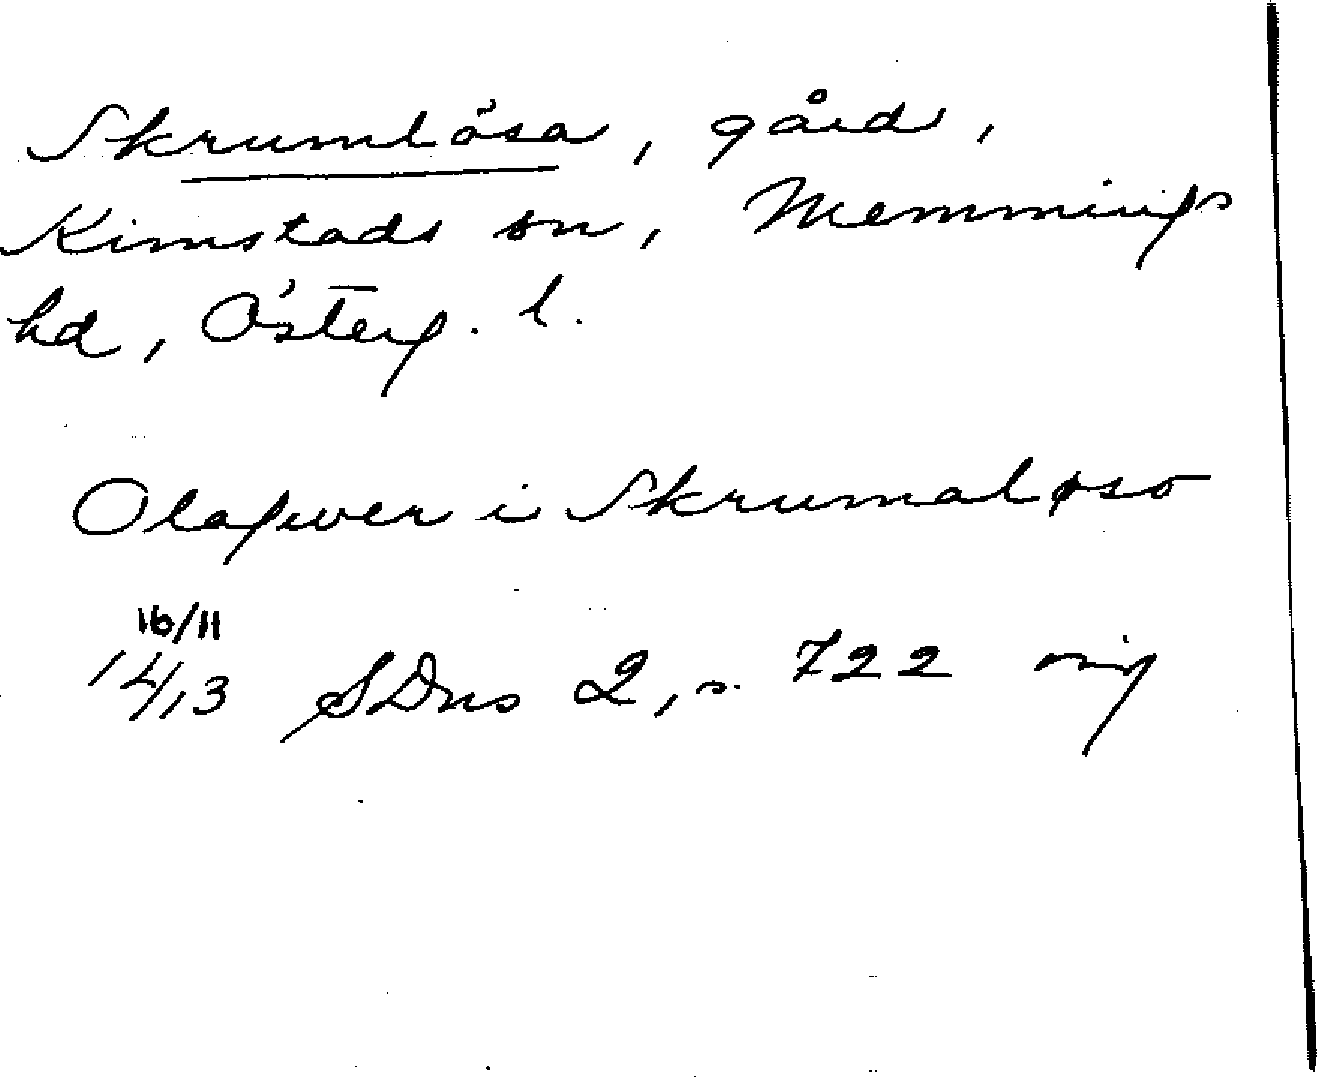 Skrumlösa, gård,
Kimstads sn, Memmings
hd, Österg. l.
Olafwer i Skrumaløso
16/11
1413 SDns 2, s. 722 orig